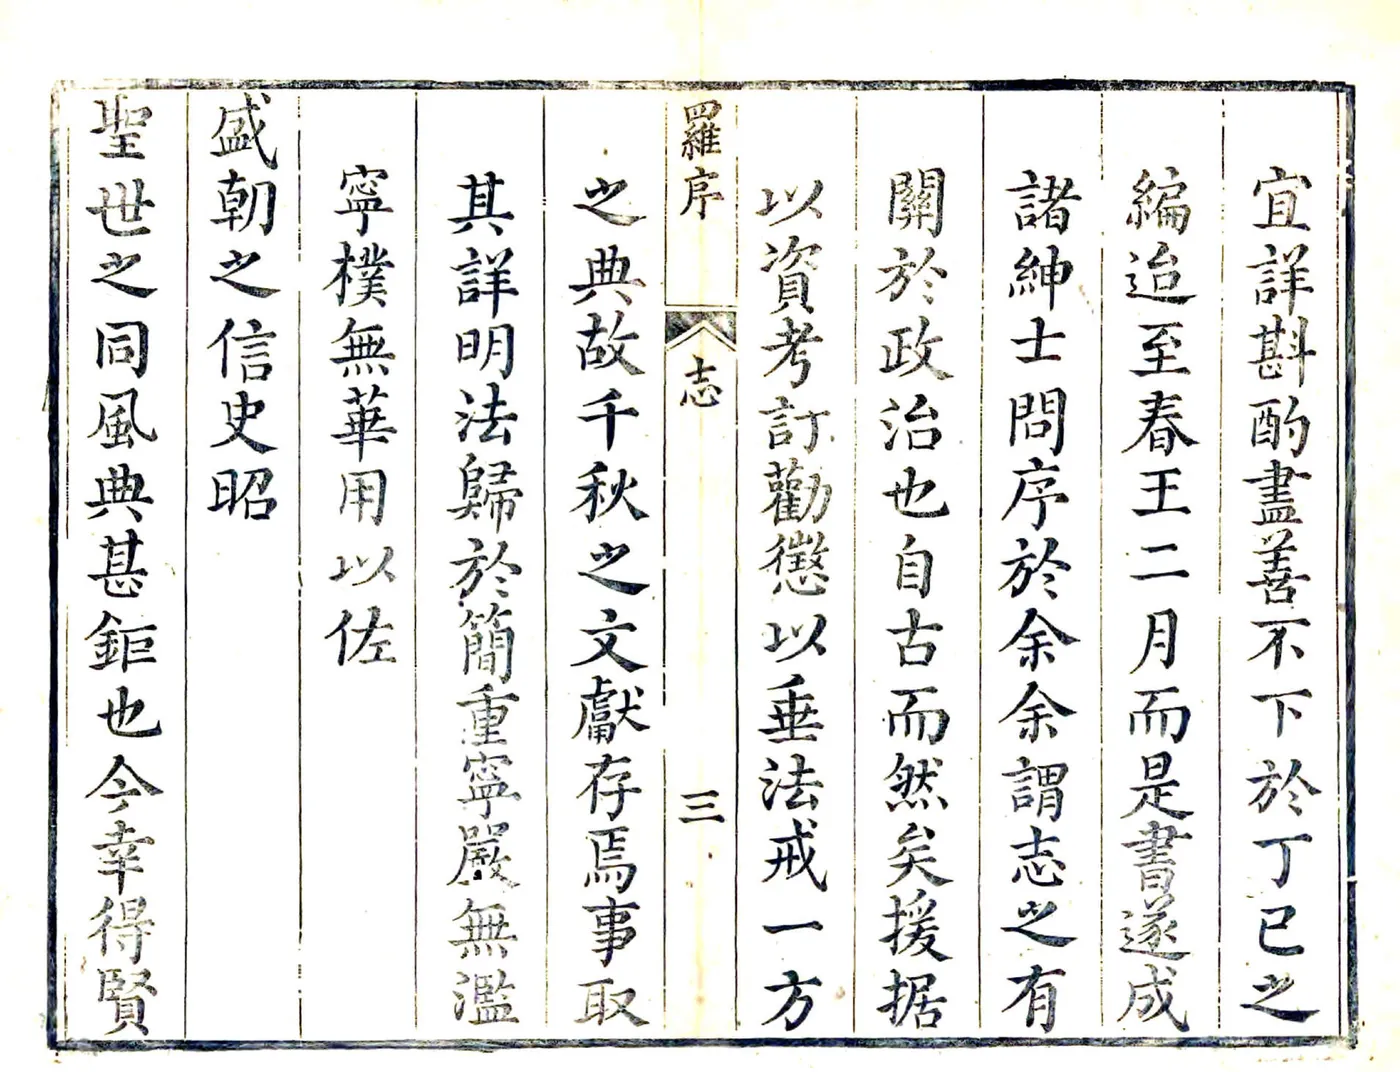 宜詳斟酌盡善不下於丁巳之
編迨至春王二月而是書遂成
諸紳士問序於余余謂志之有
關於政治也自古而然矣援据
以資考訂勸懲以垂法戒一方
羅序
志
三
之典故千秋之文獻存焉事取
其詳明法歸於簡重寧嚴無濫
寧樸無華用以佐
盛朝之信史昭
聖世之同風典甚鉅也今幸得賢